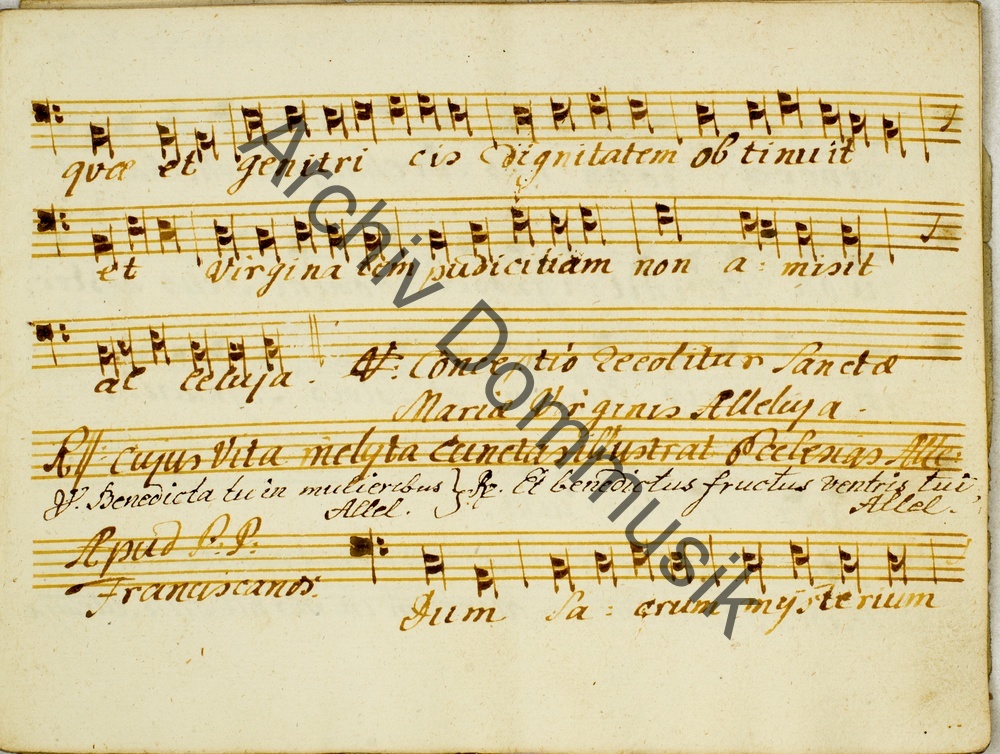 quæ et genitri cis dignitatem obtinuit
et Virgina lem pudicitiam non a = misit
al leluja. ℣. Conceptio recolitur Sanctæ
Mariæ Virginis Alleluja.
R/. Cujus Vita inclyta cunctas illustrat Ecclesias Alle:
℣. Benedicta tu in mulieribus } ℟. Et benedictus fructus ventris tui
Allel. Allel.
Apud P. P.
Franciscanos.
Dum Sa = crum mysterium
Archiv Dommusik